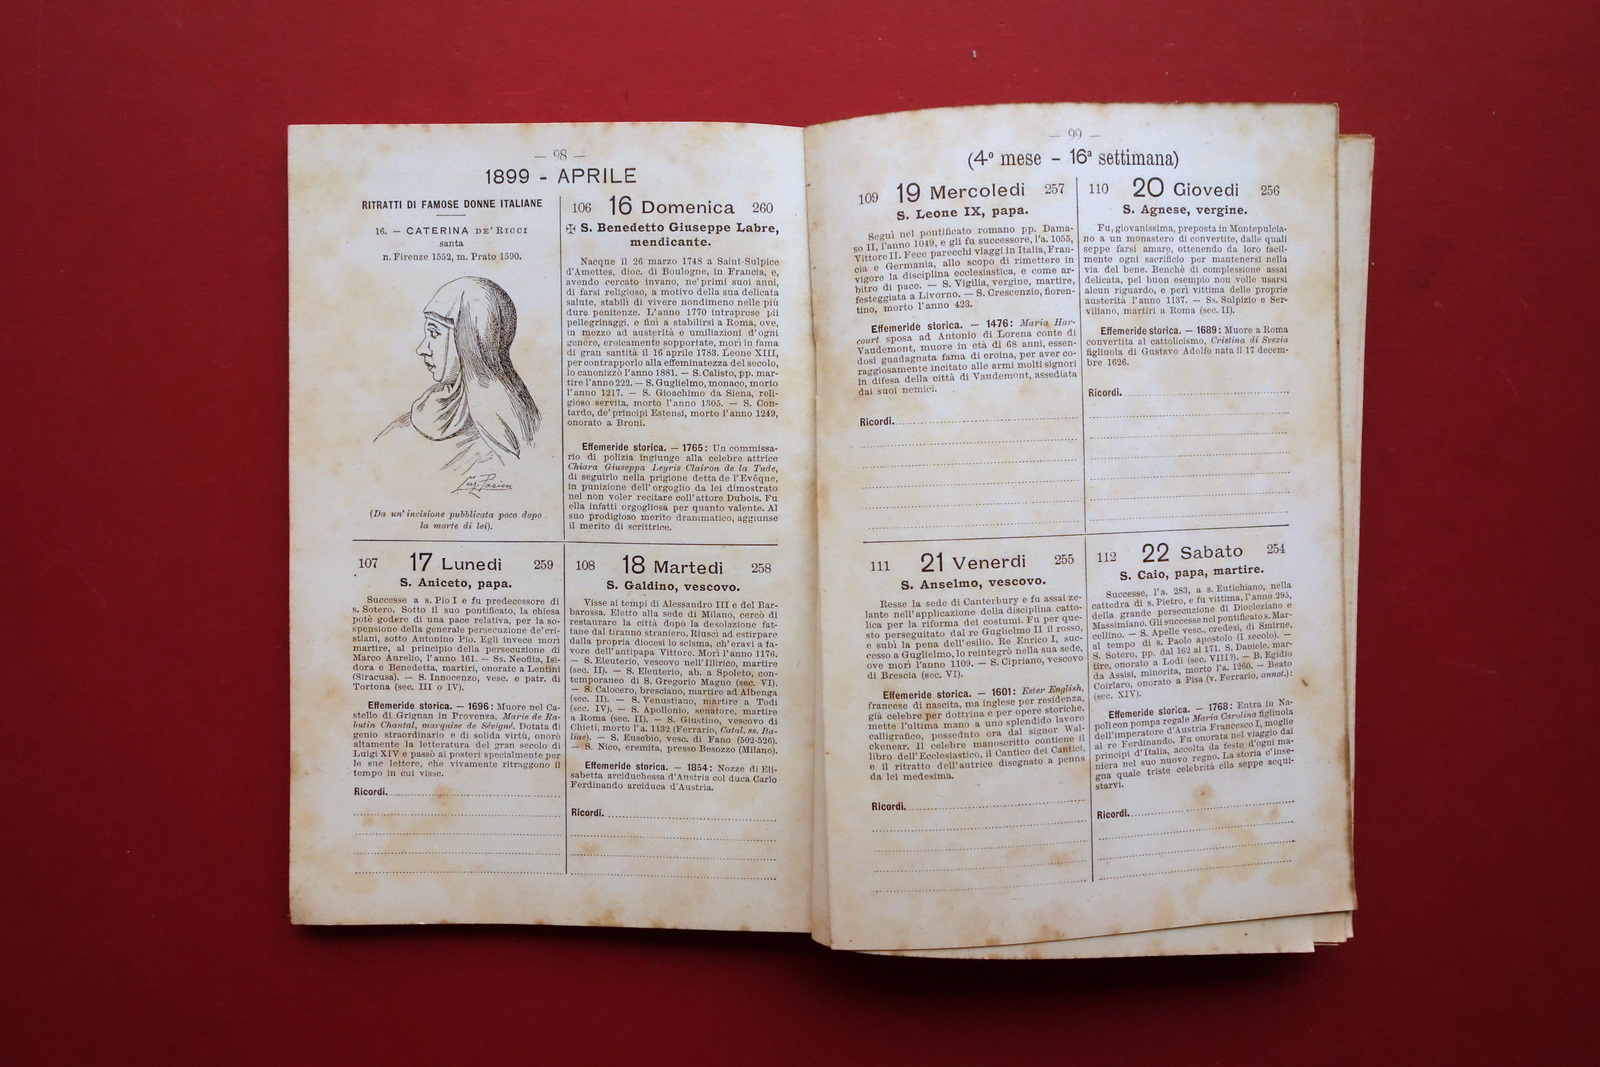 — 98 —
1899 - APRILE
RITRATTI DI FAMOSE DONNE ITALIANE
16. — CATERINA DE' RICCI
santa
n. Firenze 1552, m. Prato 1590.
(Da un' incisione pubblicata poco dopo
la morte di lei).
106 16 Domenica 260
✠ S. Benedetto Giuseppe Labre,
mendicante.
Nacque il 26 marzo 1748 a Saint-Sulpice
d'Amettes, dioc. di Boulogne, in Francia, e,
avendo cercato invano, ne' primi suoi anni,
di farsi religioso, a motivo della sua delicata
salute, stabilì di vivere nondimeno nelle più
dure penitenze. L'anno 1770 intraprese pii
pellegrinaggi, e finì a stabilirsi a Roma, ove,
in mezzo ad austerità e umiliazioni d'ogni
genere, eroicamente sopportate, morì in fama
di gran santità il 16 aprile 1783. Leone XIII,
per contrapporlo alla effeminatezza del secolo,
lo canonizzò l'anno 1881. — S. Calisto, pp. mar-
tire l'anno 222. — S. Guglielmo, monaco, morto
l'anno 1217. — S. Gioachimo da Siena, reli-
gioso servita, morto l'anno 1305. — S. Con-
tardo, de' principi Estensi, morto l'anno 1249,
onorato a Broni.
Effemeride storica. — 1765: Un commissa-
rio di polizia ingiunge alla celebre attrice
Chiara Giuseppa Leyris Clairon de la Tude,
di seguirlo nella prigione detta de l'Evêque,
in punizione dell'orgoglio da lei dimostrato
nel non voler recitare coll'attore Dubois. Fu
ella infatti orgogliosa per quanto valente. Al
suo prodigioso merito drammatico, aggiunse
il merito di scrittrice.
107 17 Lunedì 259
S. Aniceto, papa.
Successe a s. Pio I e fu predecessore di
s. Sotero. Sotto il suo pontificato, la chiesa
potè godere di una pace relativa, per la so-
spensione della generale persecuzione de' cri-
stiani, sotto Antonino Pio. Egli invece morì
martire, al principio della persecuzione di
Marco Aurelio, l'anno 161. — Ss. Neofita, Isi-
dora e Benedetta, martiri, onorate a Lentini
(Siracusa). — S. Innocenzo, vesc. e patr. di
Tortona (sec. III o IV).
Effemeride storica. — 1696: Muore nel Ca-
stello di Grignan in Provenza, Marie de Ra-
butin Chantal, marquise de Sévigné. Dotata di
genio straordinario e di solida virtù, onorò
altamente la letteratura del gran secolo di
Luigi XIV e passò ai posteri specialmente per
le sue lettere, che vivamente ritraggono il
tempo in cui visse.
Ricordi.
108 18 Martedì 258
S. Galdino, vescovo.
Visse ai tempi di Alessandro III e del Bar-
barossa. Eletto alla sede di Milano, cercò di
restaurare la città dopo la desolazione fat-
tane dal tiranno straniero. Riuscì ad estirpare
dalla propria diocesi lo scisma, ch'eravi a fa-
vore dell'antipapa Vittore. Morì l'anno 1176.
— S. Eleuterio, vescovo nell'Illirico, martire
(sec. II). — S. Eleuterio, ab. a Spoleto, con-
temporaneo di S. Gregorio Magno (sec. VI).
— S. Calocero, bresciano, martire ad Albenga
(sec. II). — S. Venustiano, martire a Todi
(sec. IV). — S. Apollonio, senatore, martire
a Roma (sec. II). — S. Giustino, vescovo di
Chieti, morto l'a. 1132 (Ferrario, Catal. ss. Ita-
liae). — S. Eusebio, vesc. di Fano (502-526).
— S. Nico, eremita, presso Besozzo (Milano).
Effemeride storica. — 1854: Nozze di Eli-
sabetta arciduchessa d'Austria col duca Carlo
Ferdinando arciduca d'Austria.
Ricordi.
— 99 —
(4° mese - 16ª settimana)
109 19 Mercoledì 257
S. Leone IX, papa.
Seguì nel pontificato romano pp. Dama-
so II, l'anno 1049, e gli fu successore, l'a. 1055,
Vittore II. Fece parecchi viaggi in Italia, Fran-
cia e Germania, allo scopo di rimettere in
vigore la disciplina ecclesiastica, e come ar-
bitro di pace. — S. Vigilia, vergine, martire,
festeggiata a Livorno. — S. Crescenzio, fioren-
tino, morto l'anno 423.
Effemeride storica. — 1476: Maria Har-
court sposa ad Antonio di Lorena conte di
Vaudemont, muore in età di 68 anni, essen-
dosi guadagnata fama di eroina, per aver co-
raggiosamente incitato alle armi molti signori
in difesa della città di Vaudemont, assediata
dai suoi nemici.
Ricordi.
110 20 Giovedì 256
S. Agnese, vergine.
Fu, giovanissima, preposta in Montepulcia-
no a un monastero di convertite, dalle quali
seppe farsi amare, ottenendo da loro facil-
mente ogni sacrificio per mantenersi nella
via del bene. Benchè di complessione assai
delicata, pel buon esempio non volle usarsi
alcun riguardo, e perì vittima delle proprie
austerità l'anno 1137. — Ss. Sulpizio e Ser-
viliano, martiri a Roma (sec. II).
Effemeride storica. — 1689: Muore a Roma
convertita al cattolicismo, Cristina di Svezia
figliuola di Gustavo Adolfo nata il 17 decem-
bre 1626.
Ricordi.
111 21 Venerdì 255
S. Anselmo, vescovo.
Resse la sede di Canterbury e fu assai ze-
lante nell'applicazione della disciplina catto-
lica per la riforma dei costumi. Fu per que-
sto perseguitato dal re Guglielmo II il rosso,
e subì la pena dell'esilio. Re Enrico I, suc-
cesso a Guglielmo, lo reintegrò nella sua sede,
ove morì l'anno 1109. — S. Cipriano, vescovo
di Brescia (sec. VI).
Effemeride storica. — 1601: Ester English,
francese di nascita, ma inglese per residenza,
già celebre per dottrina e per opere storiche,
mette l'ultima mano a uno splendido lavoro
calligrafico, posseduto ora dal signor Wal-
ckenear. Il celebre manoscritto contiene il
libro dell'Ecclesiastico, il Cantico dei Cantici,
e il ritratto dell'autrice disegnato a penna
da lei medesima.
Ricordi.
112 22 Sabato 254
S. Caio, papa, martire.
Successe, l'a. 283, a s. Eutichiano, nella
cattedra di s. Pietro, e fu vittima, l'anno 295,
della grande persecuzione di Diocleziano e
Massimiano. Gli successe nel pontificato s. Mar-
cellino. — S. Apelle vesc., credesi, di Smirne,
al tempo di s. Paolo apostolo (I secolo). —
S. Sotero, pp. dal 162 al 171. S. Daniele, mar-
tire, onorato a Lodi (sec. VIII?). — B. Egidio
da Assisi, minorita, morto l'a. 1260. — Beato
Coirlaro, onorato a Pisa (v. Ferrario, annot.):
(sec. XIV).
Effemeride storica. — 1768: Entra in Na-
poli con pompa regale Maria Carolina figliuola
dell'imperatore d'Austria Francesco I, moglie
al re Ferdinando. Fu onorata nel viaggio dai
principi d'Italia, accolta da feste d'ogni ma-
niera nel suo nuovo regno. La storia c'inse-
gna quale triste celebrità ella seppe acqui-
starvi.
Ricordi.